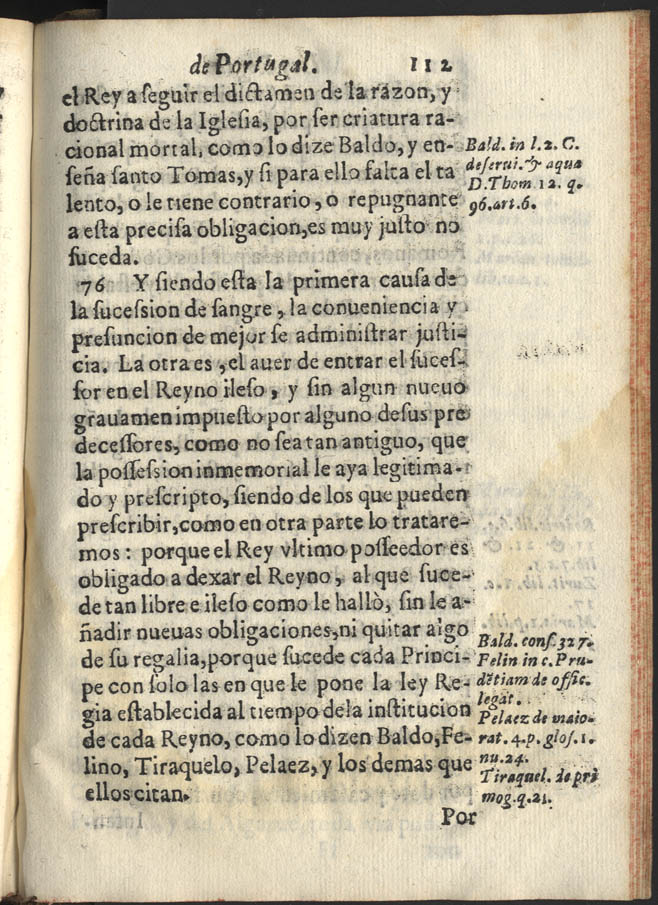 de Portugal. 112
el Rey a seguir el dictamen de la razon, y
doctrina de la Iglesia, por ser criatura ra-
cional mortal, como lo dize Baldo, y en-
seña santo Tomas, y si para ello falta el ta
lento, o le tiene contrario, o repugnante
a esta precisa obligacion, es muy justo no
suceda.
Bald. in l. 2. C.
de serui. & aqua
D. Thom. 12. q.
96. art. 6.
76 Y siendo esta la primera causa de
la sucession de sangre, la conueniencia y
presuncion de mejor se administrar justi-
cia. La otra es, el auer de entrar el suces-
sor en el Reyno ileso, y sin algun nueuo
grauamen impuesto por alguno de sus pre
decessores, como no sea tan antiguo, que
la possession inmemorial le aya legitima-
do y prescripto, siendo de los que pueden
prescribir, como en otra parte lo tratare-
mos: porque el Rey vltimo posseedor es
obligado a dexar el Reyno, al que suce-
de tan libre e ileso como le hallò, sin le a-
ñadir nueuas obligaciones, ni quitar algo
de su regalia, porque sucede cada Princi-
pe con solo las en que le pone la ley Re-
gia establecida al tiempo dela institucion
de cada Reyno, como lo dizen Baldo, Fe-
lino, Tiraquelo, Pelaez, y los demas que
ellos citan.
Bald. cons. 327.
Felin in c. Pru-
dẽtiam de offic.
legat.
Pelaez de maio-
rat. 4. p. glos. 1.
nu. 24.
Tiraquel. de pri
mog. q. 21.
Por